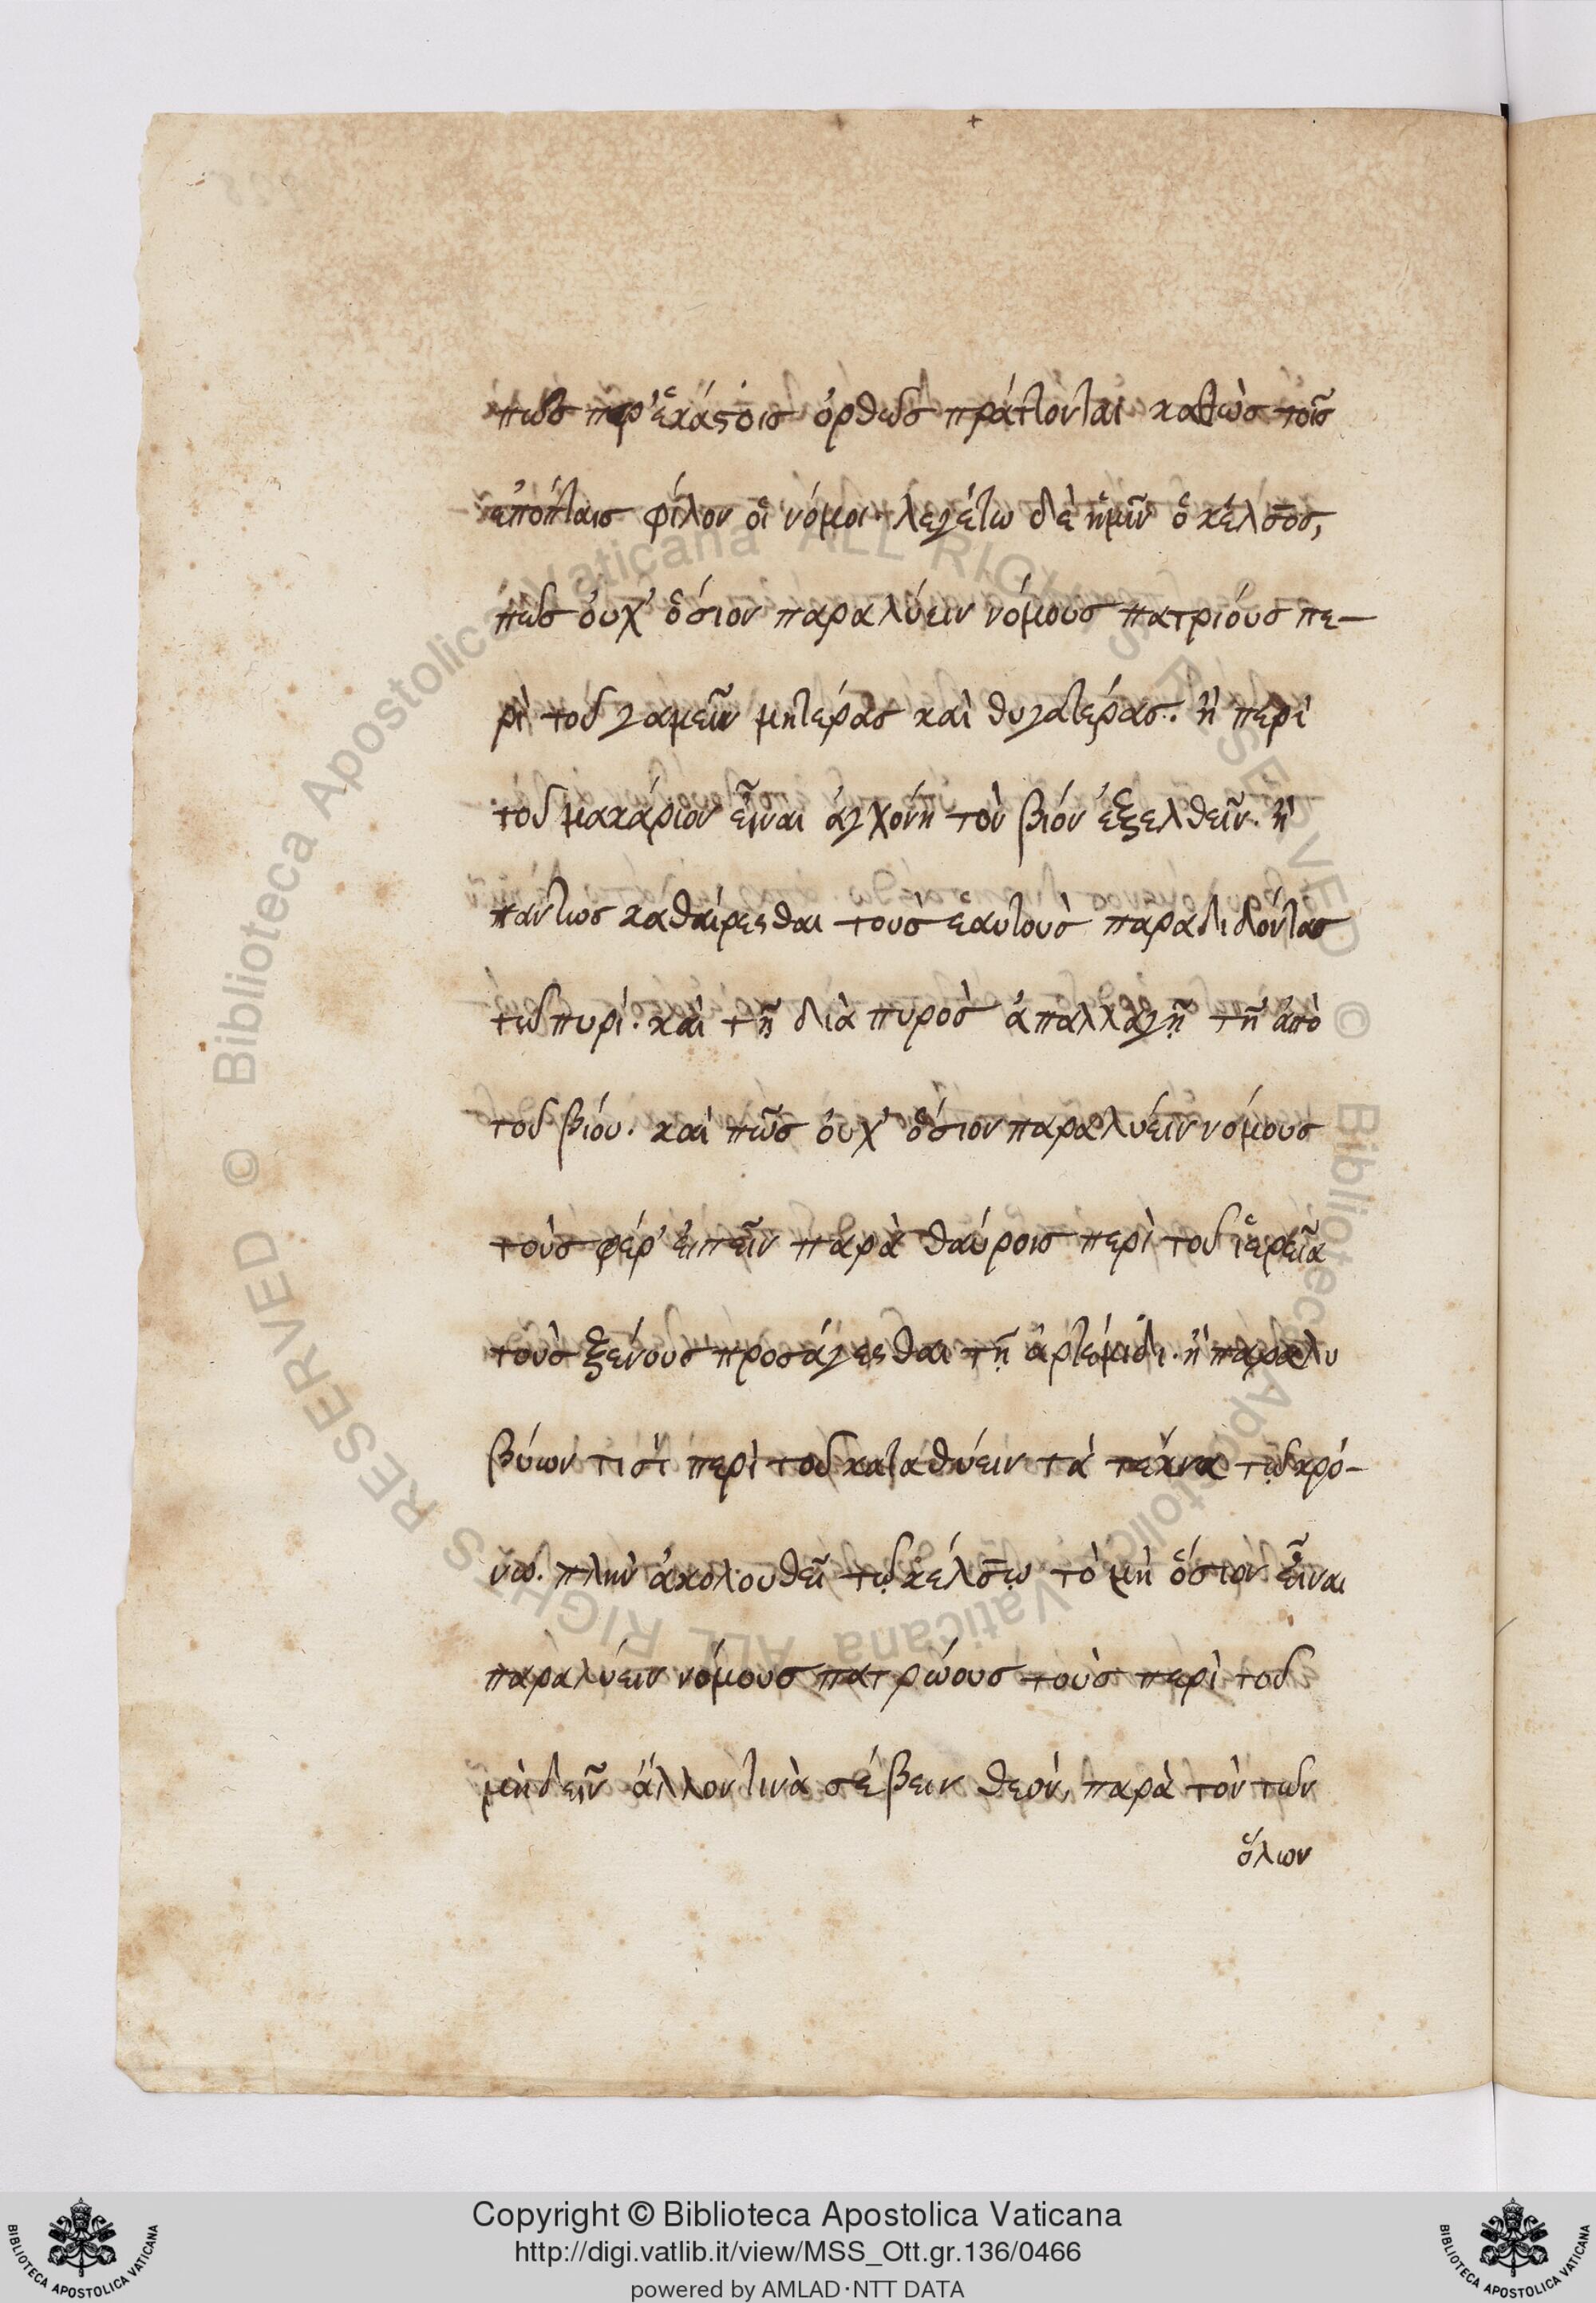 πῶς παρ' ἑκάστοις ὀρθῶς πράττονται καθὼς τοῖς
ἐπόπταις φίλον οἱ νόμοι· λεγέτω δὲ ἡμῖν ὁ κέλσος,
πῶς οὐχ' ὅσιον παραλύειν νόμους πατριόυς πε-
ρὶ τοῦ γαμεῖν μητέρας καὶ θυγατέρας. ἢ περὶ
τοῦ μακάριον εἶναι ἀγχόνη τὸν βίον ἐξελθεῖν. ἢ
πάντως καθαίρεσθαι τοὺς ἑαυτοὺς παραδιδόντας
τῶ πυρί. καὶ τῇ διὰ πυρὸς ἀπαλλαγῇ τῇ ἀπὸ
τοῦ βίου. καὶ πῶς οὐχ' ὅσιον παραλύειν νόμους
τοὺς φέρ' εἰπεῖν παρὰ θαύροις περὶ τοῦ ἱερεῖα
τοὺς ξένους προσάγεσθαι τῇ ἀρτέμιδι. ἢ παρὰ λυ
βύων τισὶ περὶ τοῦ καταθύειν τὰ τέκνα τῷ κρό-
νω. πλὴν ἀκολουθεῖ τῷ κέλσῳ τὸ μὴ ὅσιον εἶναι
παραλύειν νόμους πατρώους τοὺς περὶ τοῦ
μὴ δεῖν ἄλλον τινὰ σέβειν θεὸν, παρὰ τὸν τῶν
ὅλων
Copyright © Biblioteca Apostolica Vaticana
http://digi.vatlib.it/view/MSS_Ott.gr.136/0466
powered by AMLAD·NTT DATA
BIBLIOTECA APOSTOLICA VATICANA
BIBLIOTECA APOSTOLICA VATICANA
© Biblioteca Apostolica Vaticana ALL RIGHTS RESERVED © Biblioteca Apostolica Vaticana ALL RIGHTS RESERVED